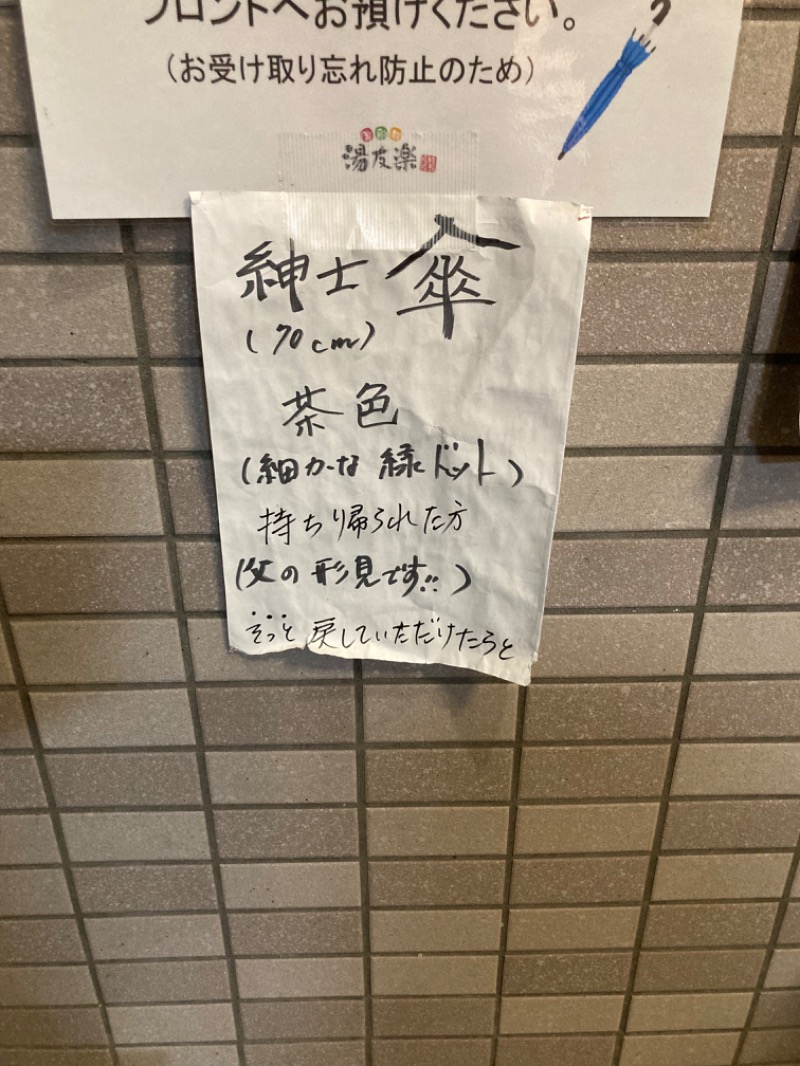 フロントへお預けください。
(お受け取り忘れ防止のため)
湯友楽
紳士傘
(70cm)
茶色
(細かな緑ドット)
持ち帰られた方
(父の形見です!!)
そっと戻していただけたらと